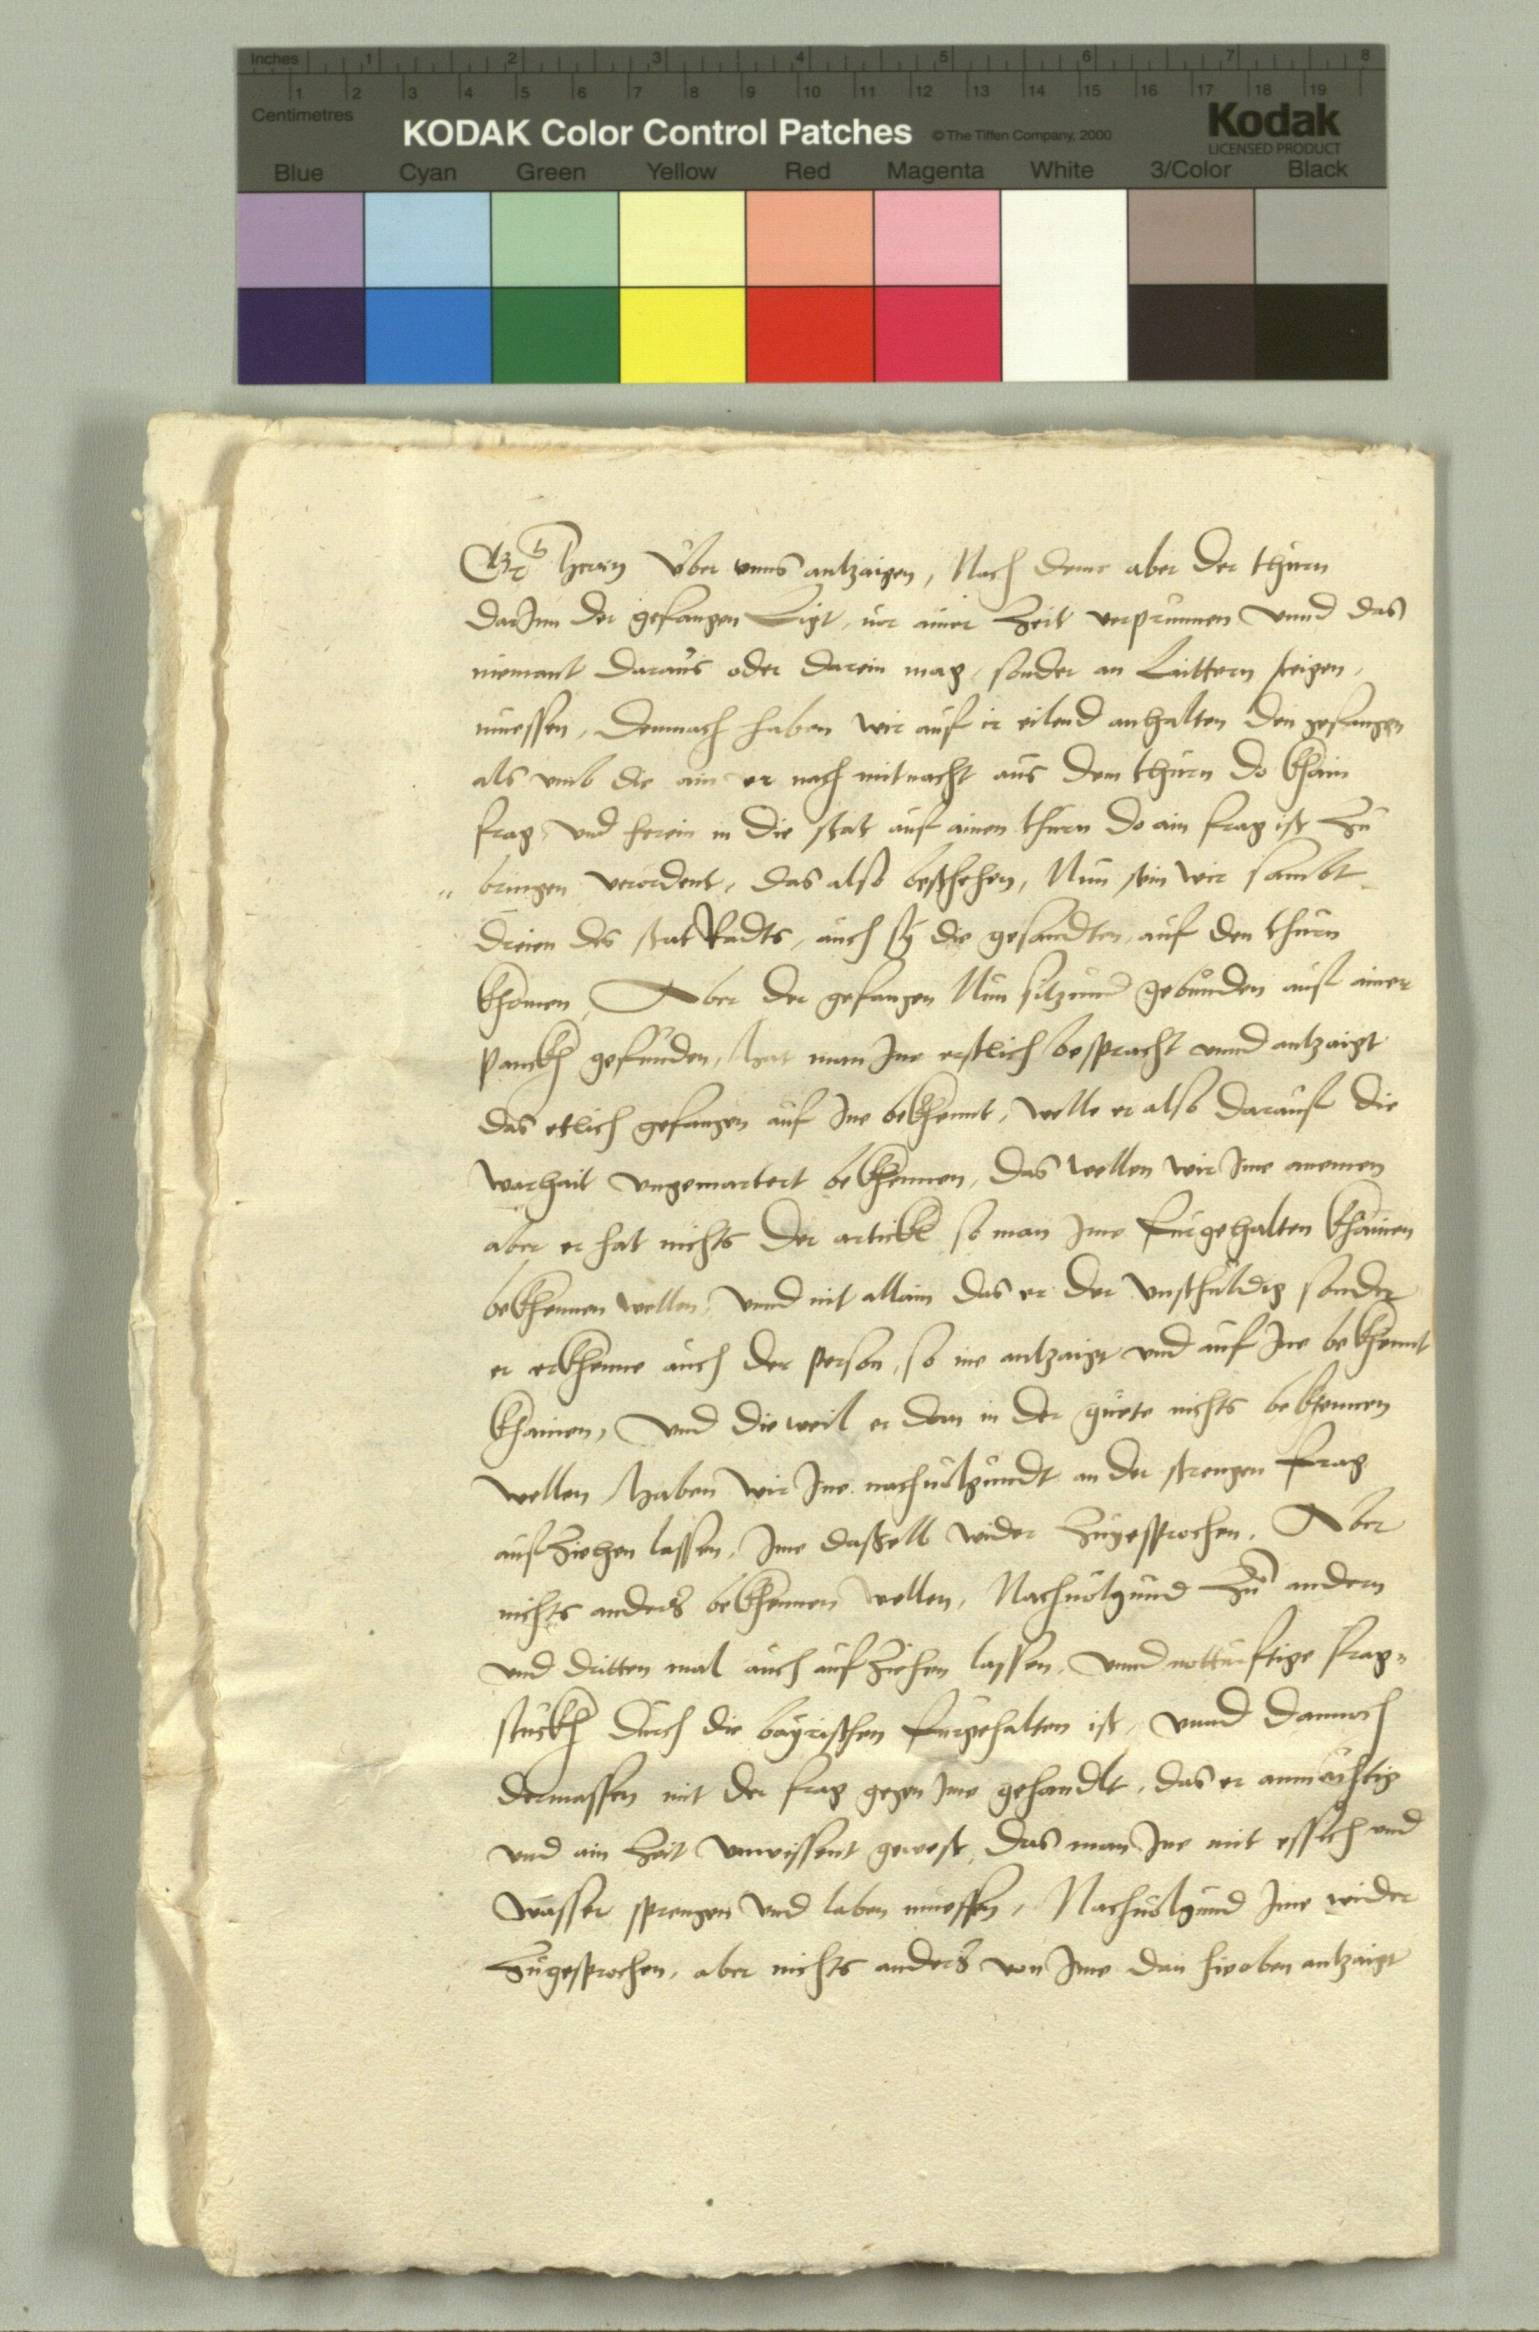 Inches 1 2 3 4 5 6 7 8
1 2 3 4 5 6 7 8 9 10 11 12 13 14 15 16 17 18 19
Centimetres
KODAK Color Control Patches © The Tiffen Company, 2000 Kodak
LICENSED PRODUCT
Blue Cyan Green Yellow Red Magenta White 3/Color Black
herrn über unns antzaigen, Nach deme aber der thurn
darInn der gefangen Ligt, vor ainer Zeit verprunnen vnnd das
niemant daraus oder darein mag, sonder an Laittern steigen,
muessen, Demnach haben wir auf ir eilend anhalten den gefangen
als vmb die ain vr nach mitnacht aus dem thurn do khain
frag vnd herein in die stat auf ainen thurn do ain frag ist Zu
bringen verordent, das also beschehen, Nun sein wir sambt
dreien des stat Radts, auch sy die gesandten, auf den thurn
khomen, Aber der gefangen Nun sitzund gebunden auf ainer
panckh gefunden, hat man Ine erstlich bespracht vnnd antzaigt
das etlich gefangen auf Ine bekhennt, welle er also darauf die
warhait vngemartert bekhennen, das wellen wir Ime anemen
aber er hat nichts der artickl so man Ime furgehalten khainen
bekhennen wellen, vnnd nit allain das er der vnschuldig sonder
er erkhenne auch der person, so ine antzaigt vnd auf Ine bekhennt
khainen, vnd dieweil er dan in der guete nichts bekhennen
wellen, haben wir Ine nachuolgundt an der strengen frag
aufziehen lassen, Ime dasselb wider Zugesprochen, Aber
nichts anders bekhennen wellen, Nachuolgund Zu andern
vnd dritten mal auch aufziehen lassen, vnnd notturftige frag=
stuckh durch die bayrischen furgehalten ist, vnnd dannoch
dermassen mit der frag gegen Ime gehandlt, das er anmächtig
vnd ain Zeit vnwissent gewest, das man Ine mit essich vnd
wasser sprengen vnd laben muessen, Nachuolgund Ime wider
Zugesprochen, aber nichts anders von Ime dan hieoben antzaigt